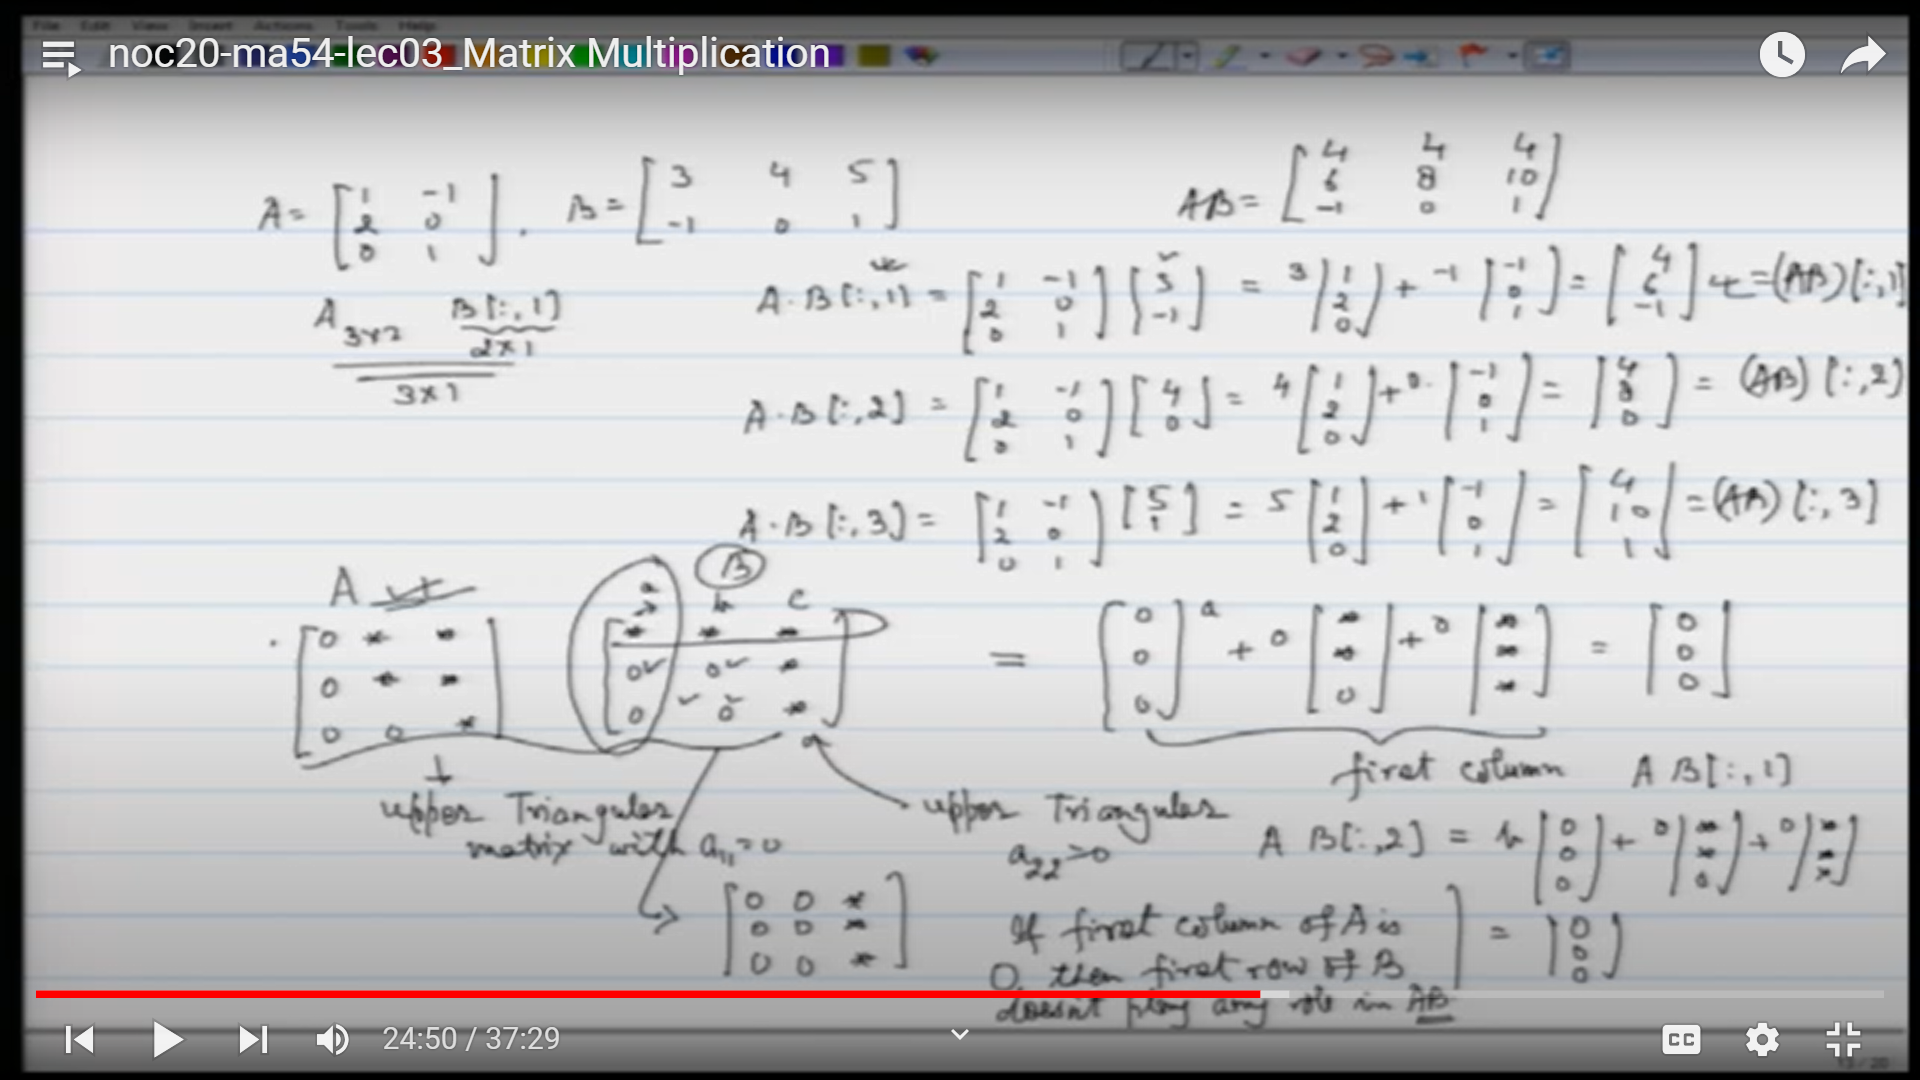 File Edit View Insert Actions Tools Help
noc20-ma54-lec03_Matrix Multiplication
A = [1 -1; 2 0; 0 1], B = [3 4 5; -1 0 1]
AB = [4 4 4; 6 8 10; -1 0 1]
A 3×2 B[:,1] 2×1
3×1
A·B[:,1] = [1 -1; 2 0; 0 1] [3; -1] = 3 [1; 2; 0] + -1 [-1; 0; 1] = [4; 6; -1] = (AB)[:,1]
A·B[:,2] = [1 -1; 2 0; 0 1] [4; 0] = 4 [1; 2; 0] + 0· [-1; 0; 1] = [4; 8; 0] = (AB)[:,2]
A·B[:,3] = [1 -1; 2 0; 0 1] [5; 1] = 5 [1; 2; 0] + 1 [-1; 0; 1] = [4; 10; 1] = (AB)[:,3]
A B
a b c
[0 * *; 0 * *; 0 0 *] [* * *; 0 0 *; 0 0 *] = [0; 0; 0] a + 0 [*; *; 0] + 0 [*; *; *] = [0; 0; 0]
first column A B[:,1]
upper Triangular
matrix with a₁₁=0
upper Triangular
a₂₂=0
A B[:,2] = b [0; 0; 0] + 0 [*; *; 0] + 0 [*; *; *]
= [0; 0; 0]
[0 0 *; 0 0 *; 0 0 *]
If first column of A is
0, then first row of B
doesn't play any role in AB.
24:50 / 37:29
CC